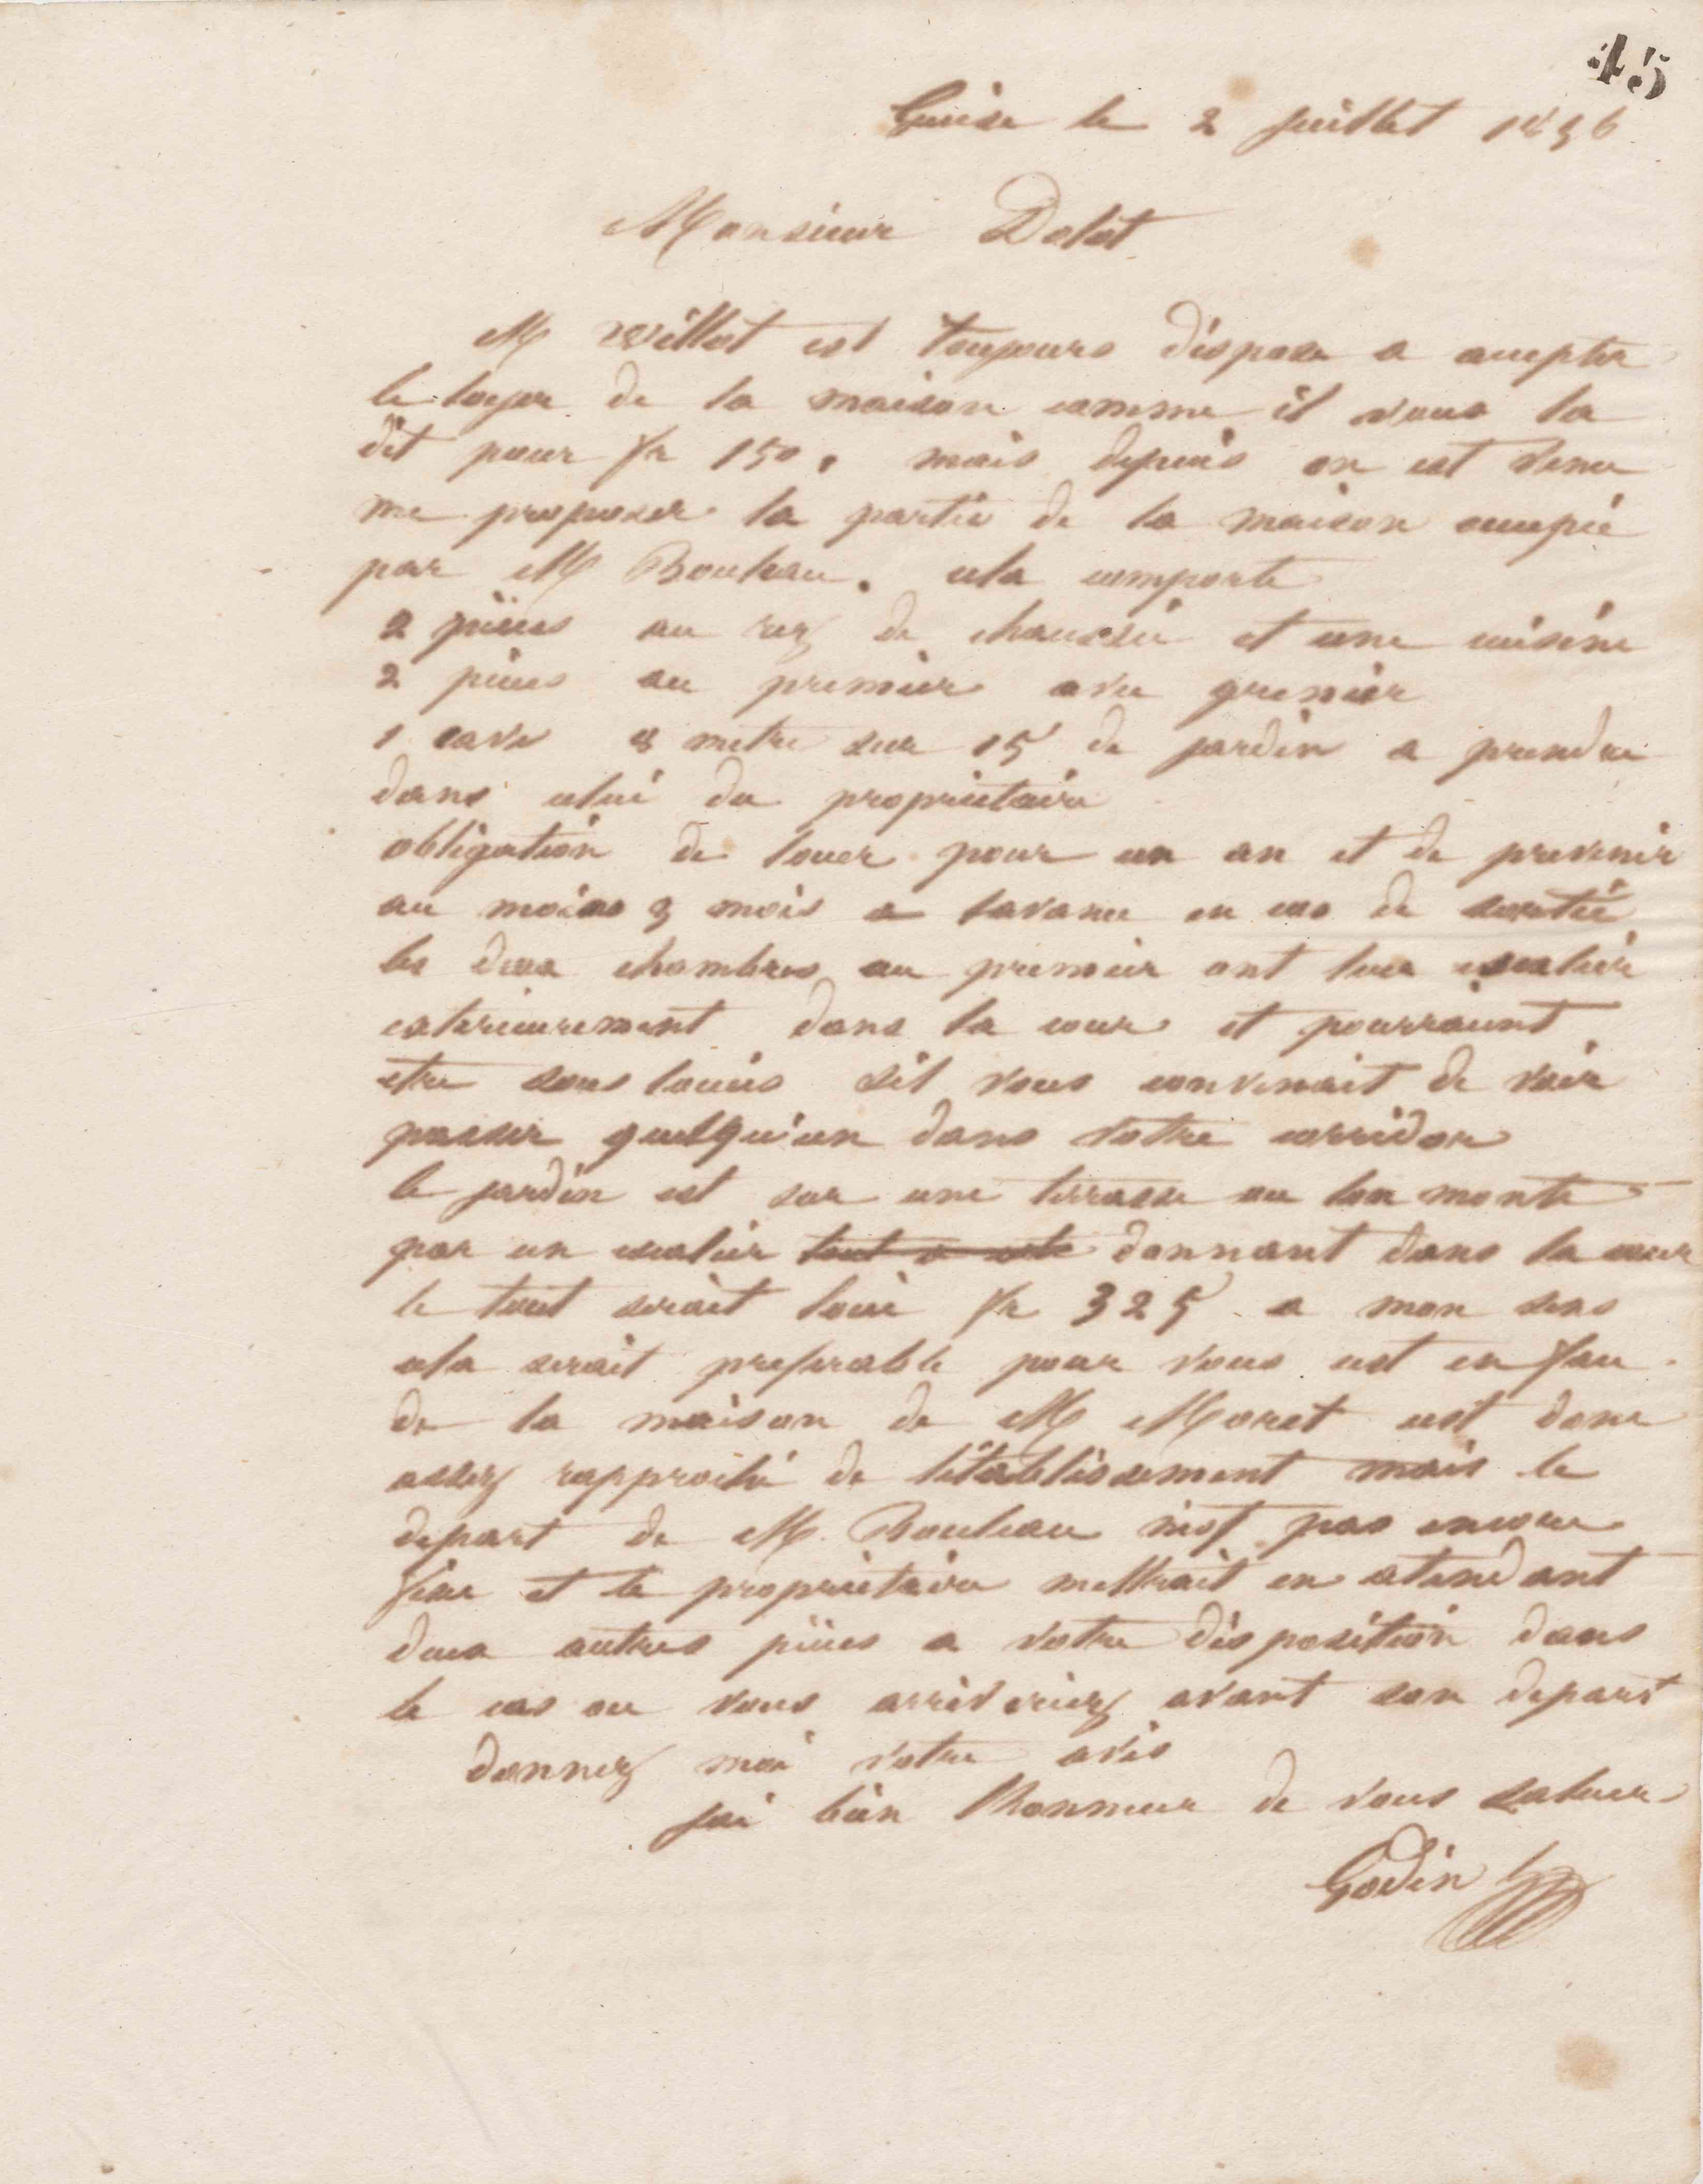 45
Guise le 2 juillet 1856
Monsieur Dolot
M Willot est toujours dispose a accepter
le loyer de la maison comme il vous la
dit pour fr 150. mais depuis on est venu
me proposer la partie de la maison occupée
par M Bouleau. cela comporte
2 pièces au rez de chaussée et une cuisine
2 pièces au premier avec grenier
1 cave 8 metre sur 15 de jardin a prendre
dans celui du proprietaire
obligation de louer pour un an et de prevenir
au moins 3 mois a lavance en cas de sortie
les deux chambres au premier ont leur escalier
exterieurement dans la cour et pourraient
etre sous louées sil vous convenait de voir
passer quelqu'un dans votre corridor
le jardin est sur une terrasse ou lon monte
par un escalier donnant dans la cour
le tout serait loué fr 325 a mon sens
cela serait preferable pour vous cest en face
de la maison de M Moret cest donc
assez rapproché de létablissement mais le
depart de M. Bouleau nest pas encore
fixe et le proprietaire mettrait en atendant
deux autres pièces a votre disposition dans
le cas ou vous arriveriez avant son depart
donnez moi votre avis
jai bien lhonneur de vous saluer
Godin